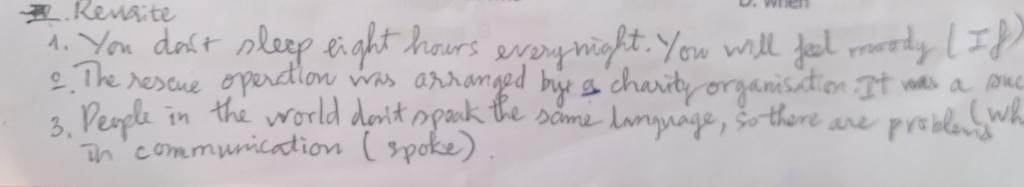 D. When
.Rewrite
1. You don't sleep eight hours every night. You will feel moody (If)
2. The rescue operation was arranged by a charity organisation. It was a suc
(wh
3. People in the world don't speak the same language, so there are problems
in communication (spoke).